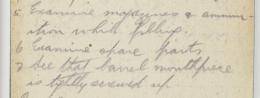 5 Examine magazines & ammun-
ition whilst filling.
6 Examine spare parts
7 See that barrel mouthpiece
is tightly screwed up